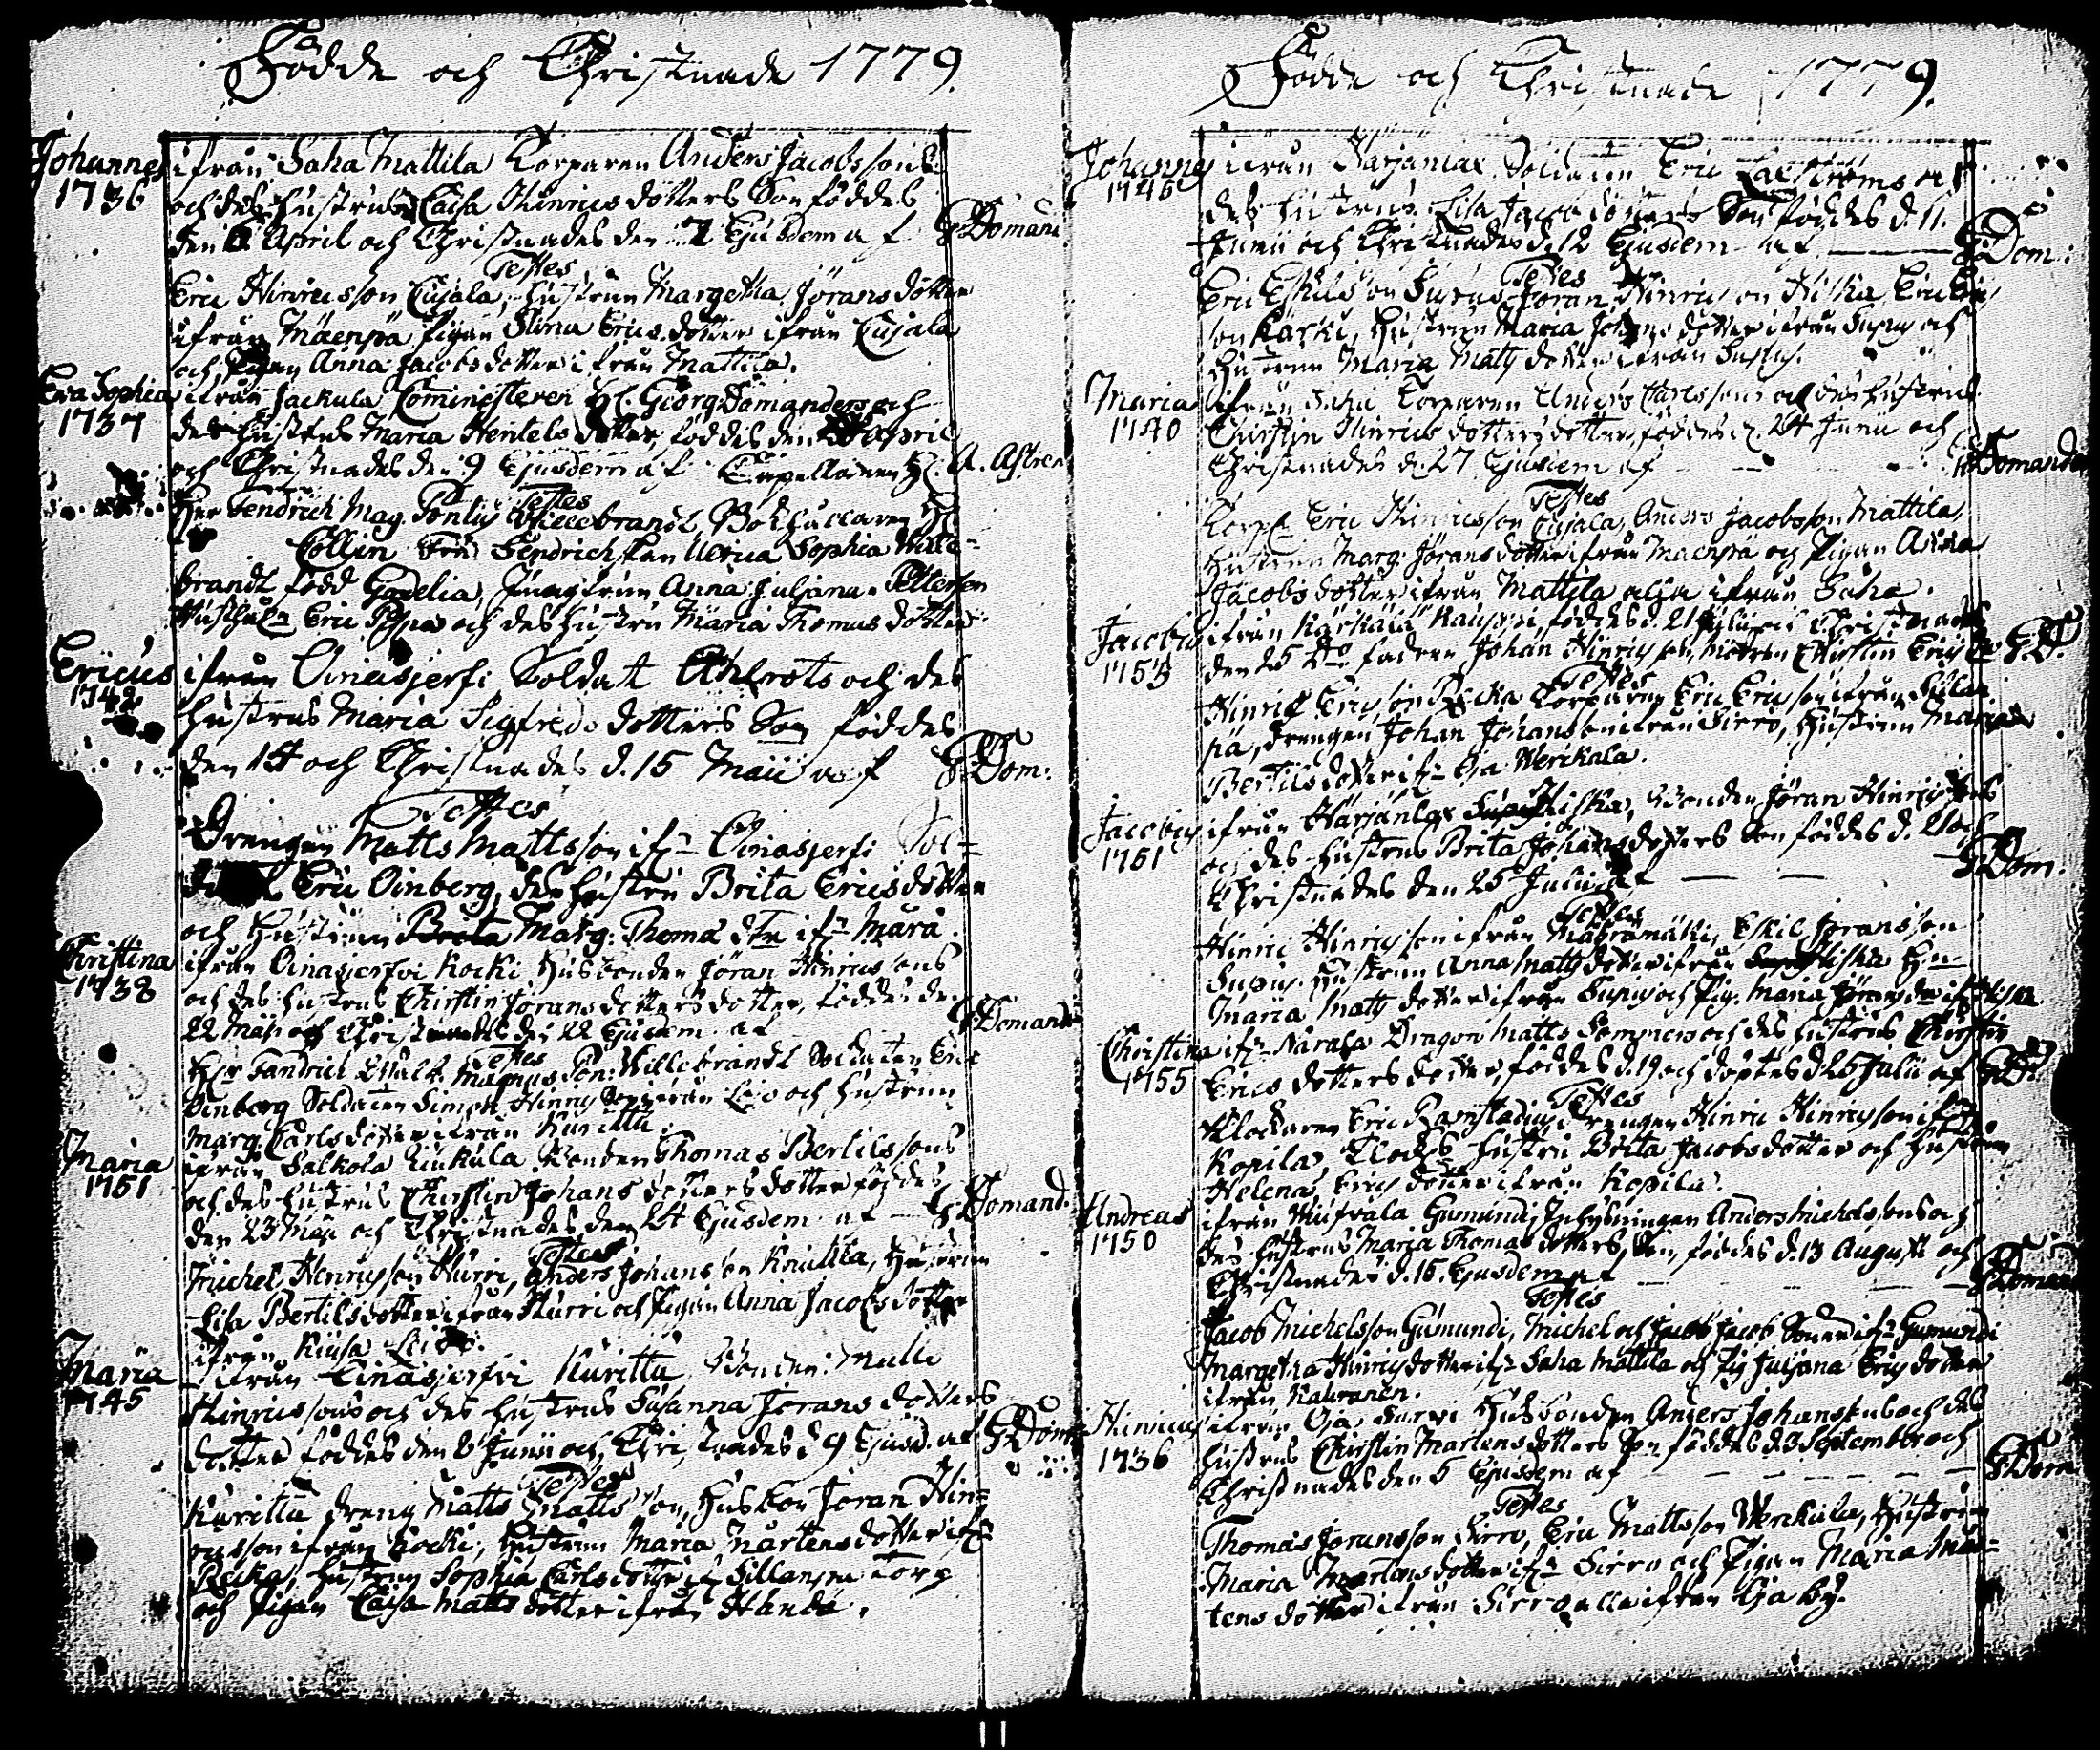 Födde och Christnade 1779.
Johannes
1736
ifrån Saha Mattila Torparen Anders Jacobssons
och des hustrus Caisa Hinrics dotters Son föddes
den 6 April och Christnades den 7 Ejusdem af G. Domand
Testes
Eric Hinricsson Cujala, hustrun Margetha Jörans dotter
ifrån Mäenpä Pigan Stina Erics dotter ifrån Cujala
och Pigan Anna Jacobs dotter ifrån Mattila.
Eva Sophia
1737
ifrån Jackula Cominesteren H. Georg Domanders och
des hustrus Maria Hentels dotter föddes den April
och Christnades den 9 Ejusdem af Capellanen H. A. Astren
Testes
Her Fendrich Mag. Pontus Willebrandt Bokhållaren H
Collin Fru Fendrichskan Ulrica Sophia Wille-
brandt född Gadelia, Jungfrun Anna Juliana Pettersen
Eric och des hustru Maria Thomas dotter
Ericus
1742
ifrån Oinasjerfi Soldat Ahlrots och des
hustrus Maria Sigfreds dotters Son föddes
den 14 och Christnades d. 15 Maii af G. Dom:
Testes
Drengen Matts Mattsson if. Oinasjerfi Sol-
Eric Oinberg, des hustru Brita Erics dotter
och Hustrun Brita Marg. Thomæ dtr if. Mara.
Christina
1738
ifrån Oinasjerfvi Kocki Husbonden Jöran Hinricssons
och des hustrus Chirstin Jörans dotters dotter, föddes den
22 Maji och Christnades den 22 Ejusdem af G. Domand
Testes
H. Fandrich Magnus Pon: Willebrandt Soldaten Eric
Oinberg Soldaten Simon Hinny ifrån och hustrun
Marg. Carls dotter ifrån Kuritta.
Maria
1751
ifrån Salkola Kiukula Bonden Thomas Bertilssons
och des hustrus Chirstin Johans dotters dotter föddes
den 23 Maji och Christnades den 24 Ejusdem af G. Domand.
Testes
Michel Henricsson Hurri, Anders Johansson Knuttila, Hustrun
Lisa Bertils dotter ifrån Hurri och Pigan Anna Jacobs dotter
ifrån Kiusa
Maria
1745
ifrån Oinasjerfvi Kuritta Bonden Matts
Hinricssons och des hustrus Susanna Jörans dotters
dotter föddes den 8 Junii och Christnades d. 9 Ejusd. af G. Dom:
Testes
Kuritta dreng Matts Mattsson, Husbon Jöran Hin-
ricsson ifrån Kocki, Hustrun Maria Mårtens dotter if.
Reika, hustrun Sophia Carls dotter if. Sillanpä Torp
och Pigan Caisa Matts dotter ifrån
Födde och Christnade 1779.
Johannes
1746
ifrån Härjänlax Soldaten Eric Laxströms och
des hustrus Lisa Jacobs dotters Son föddes d. 11.
Junii och Christnades d. 12 Ejusdem af G. Dom:
Testes
Eric Eskilsson Supus Jöran Hinricsson Hiska, Eric Eric
son Karki, Hustrun Maria Johans dotter ifrån Supus och
Hustrun Maria Matts dotter ifrån Supus.
Maria
1740
ifrån Saha Torparen Anders Carlssons och des hustrus
Chirstin Hinrics dotters dotter, föddes d. 24 Junii och
Christnades d. 27 Ejusdem af G. Domander
Testes
Torp. Eric Hinricsson Cujala, Anders Jacobsson Mattila,
Hustrun Marg. Jörans dotter ifrån Mäenpä och Pigan Anna
Jacobs dotter ifrån Mattila alla ifrån Saha.
Jacobus
1753
ifrån Kärkälä Kauppi föddes d. 21 Julii och Christnades
den 25 d:o fadren Johan Hinricsson, Modren Chirstin Erics G. D.
Testes
Hinric Ericsson Torparen Eric Ericsson ifrån Sillan
pä, Drengen Johan Johansson ifrån Sirro, Hustrun Maria
Bertils dotter if. Oja Werikala.
Jacobus
1751
ifrån Härjänlax Supus Hiska, Bonden Jöran Hinricssons
och des hustrus Brita Johans dotters Son föddes d. 21 och
Christnades den 25 Julii af G. Dom.
Testes
Hinric Hinricsson ifrån Eskil Joransson
Supus. Hustrun Anna Matts dotter ifrån Supus Hiska Hu
Maria Matts dotter ifrån Supus och Pig. Maria Jörans dtr if. Hiska
Christina
1755
if. Narala Dragon Matts Sommers och des hustrus Chirstin
Erics dotters dotter, föddes d. 19 och döptes d. 25 Julii af G. D.
Testes
Klockaren Eric Ramstadius Drengen Hinric Hinricsson if.
Kopila, Klock. Hustru Brita Jacobs dotter och Hustrun
Helena Erics dotter ifrån Kopila.
Andreas
1750
ifrån Gumundi, Inhysningen Anders Michelssons och
des hustrus Maria Thomas dotters Son, föddes d. 13 Augusti och
Christnades d. 15. Ejusdem af G. Doman
Testes
Jacob Michelsson Gumundi, Michel och Jacob Jacob Söner if. Gumundi
Margetha Hinrics dotter if. Saha Mattila och Pig Juliana Erics dotter
ifrån Kauranen.
Hinricus
1736
ifrån Oja Sarvi Husbonden Anders Johanssons och des
hustrus Chirstin Martens dotters Son föddes d. 3 September och
Christnades den 5 Ejusdem af G. Dom
Testes
Thomas Joransson Sirro, Eric Mattsson Werikala, Hustrun
Maria Martens dotter if. Sirro och Pigan Maria Mar-
tens dotter ifrån Sirro alla ifrån Oja By.